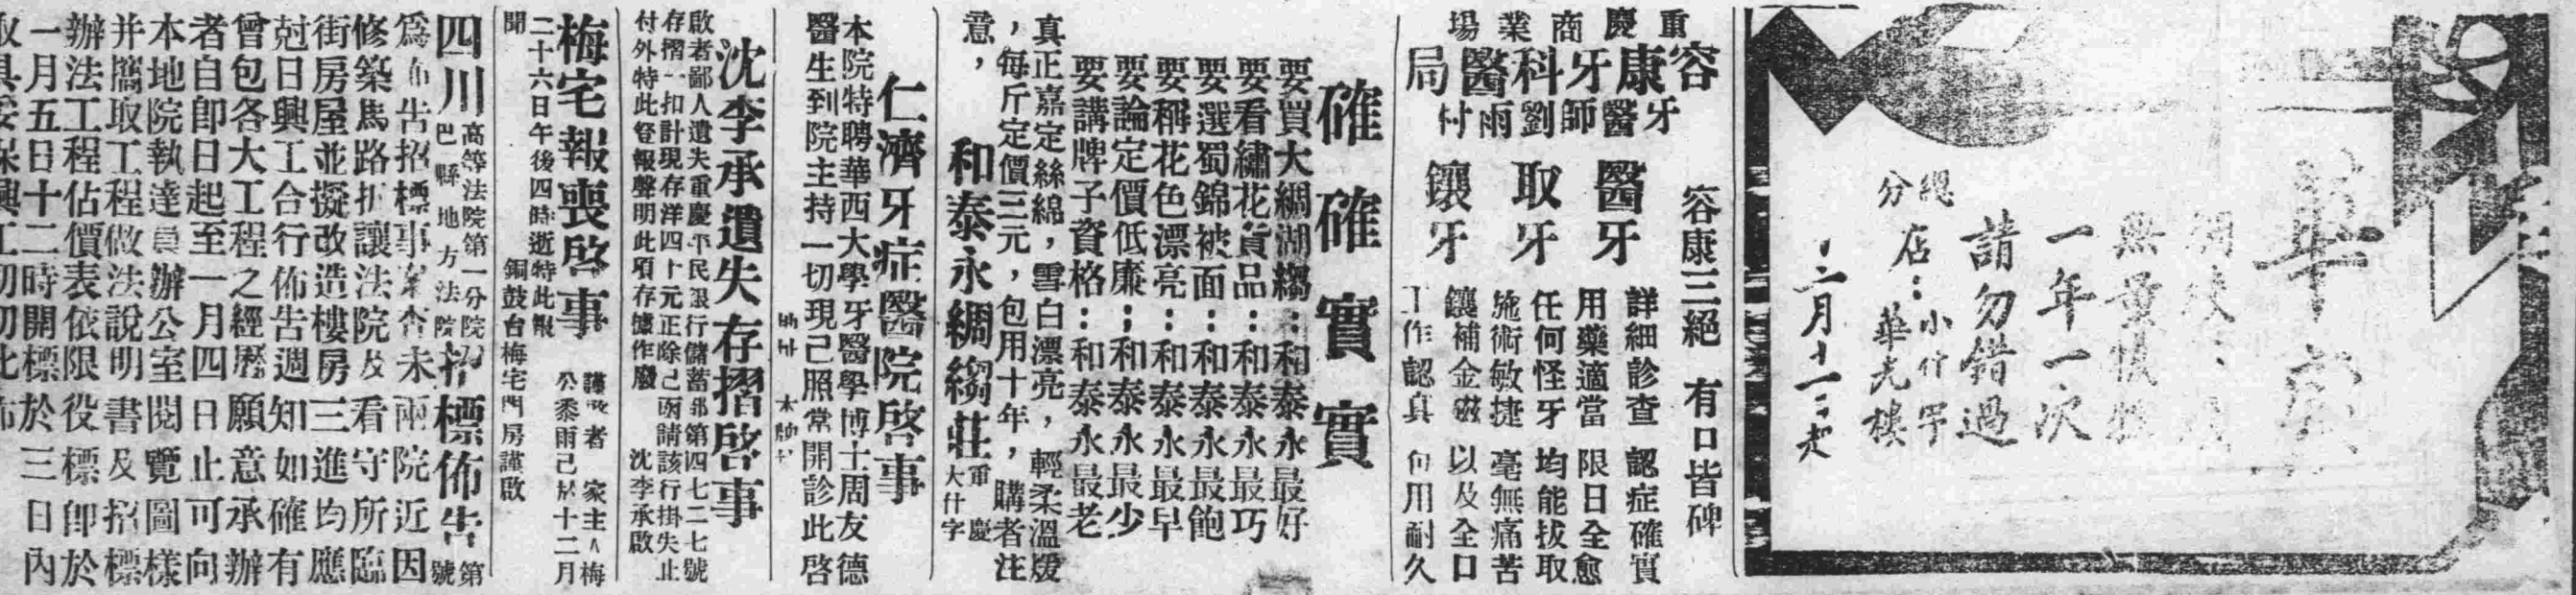 華
一年一次
請勿錯過
總
分
店：小什字
華光樓
十二月十一起
重慶商業場
容康牙科醫局
牙醫師劉雨村
容康三絕　有口皆碑
醫牙　詳細診查　認症確實
用藥適當　限日全愈
取牙　任何怪牙　均能拔取
施術敏捷　毫無痛苦
鑲牙　鑲補金磁　以及全口
工作認真　包用耐久
確確實實
要買大綢湖縐：和泰永最好
要看繡花貨品：和泰永最巧
要選蜀錦被面：和泰永最飽
要稱花色漂亮：和泰永最早
要論定價低廉：和泰永最少
要講牌子資格：和泰永最老
真正嘉定絲綿，雪白漂亮，輕柔溫煖
，每斤定價三元，包用十年，購者注
意，
和泰永綢縐莊　重慶
大什字
仁濟牙症醫院啓事
本院特聘華西大學牙醫學博士周友德
醫生到院主持一切現已照常開診此啓
沈李承遺失存摺啓事
啟者鄙人遺失重慶平民銀行儲蓄部第四七二七號
存摺一扣計現存洋四十元正除已函請該行掛失止
付外特此登報聲明此項存據作廢　沈李承啟
梅宅報喪啓事
謹啟者　家主人梅
公黍雨已於十二月
二十六日午後四時逝特此報
聞　銅鼓台梅宅門房謹啟
四川高等法院第一分院
巴縣地方法院招標佈告第　號
為佈告招標事案查未兩院近因
修築馬路拆讓法院及看守所臨
街房屋並擬改造樓房三進均應
尅日興工合行佈告週知如確有
曾包各大工程之經歷願意承辦
者自卽日起至一月四日止可向
本地院執達員辦公室閱覽圖樣
并攜取工程做法說明書及招標
辦法工程佔價表依限役標卽於
一月五日十二時開標於三日內
取具妥保興工切切此佈